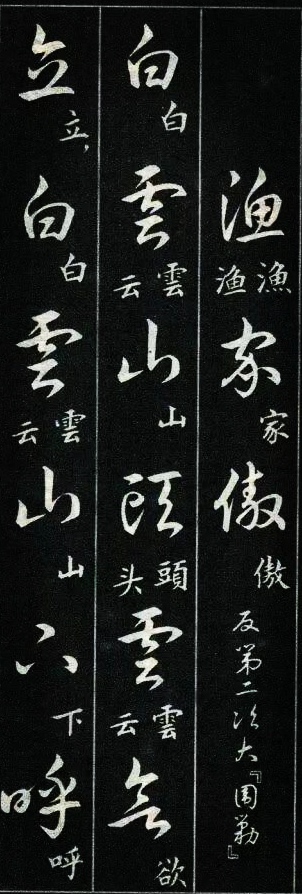 漁漁渔家家傲傲反第二次大『圍勦』
白白雲雲云山山頭頭头雲雲云欲欲
立立,白白雲雲云山山下下呼呼